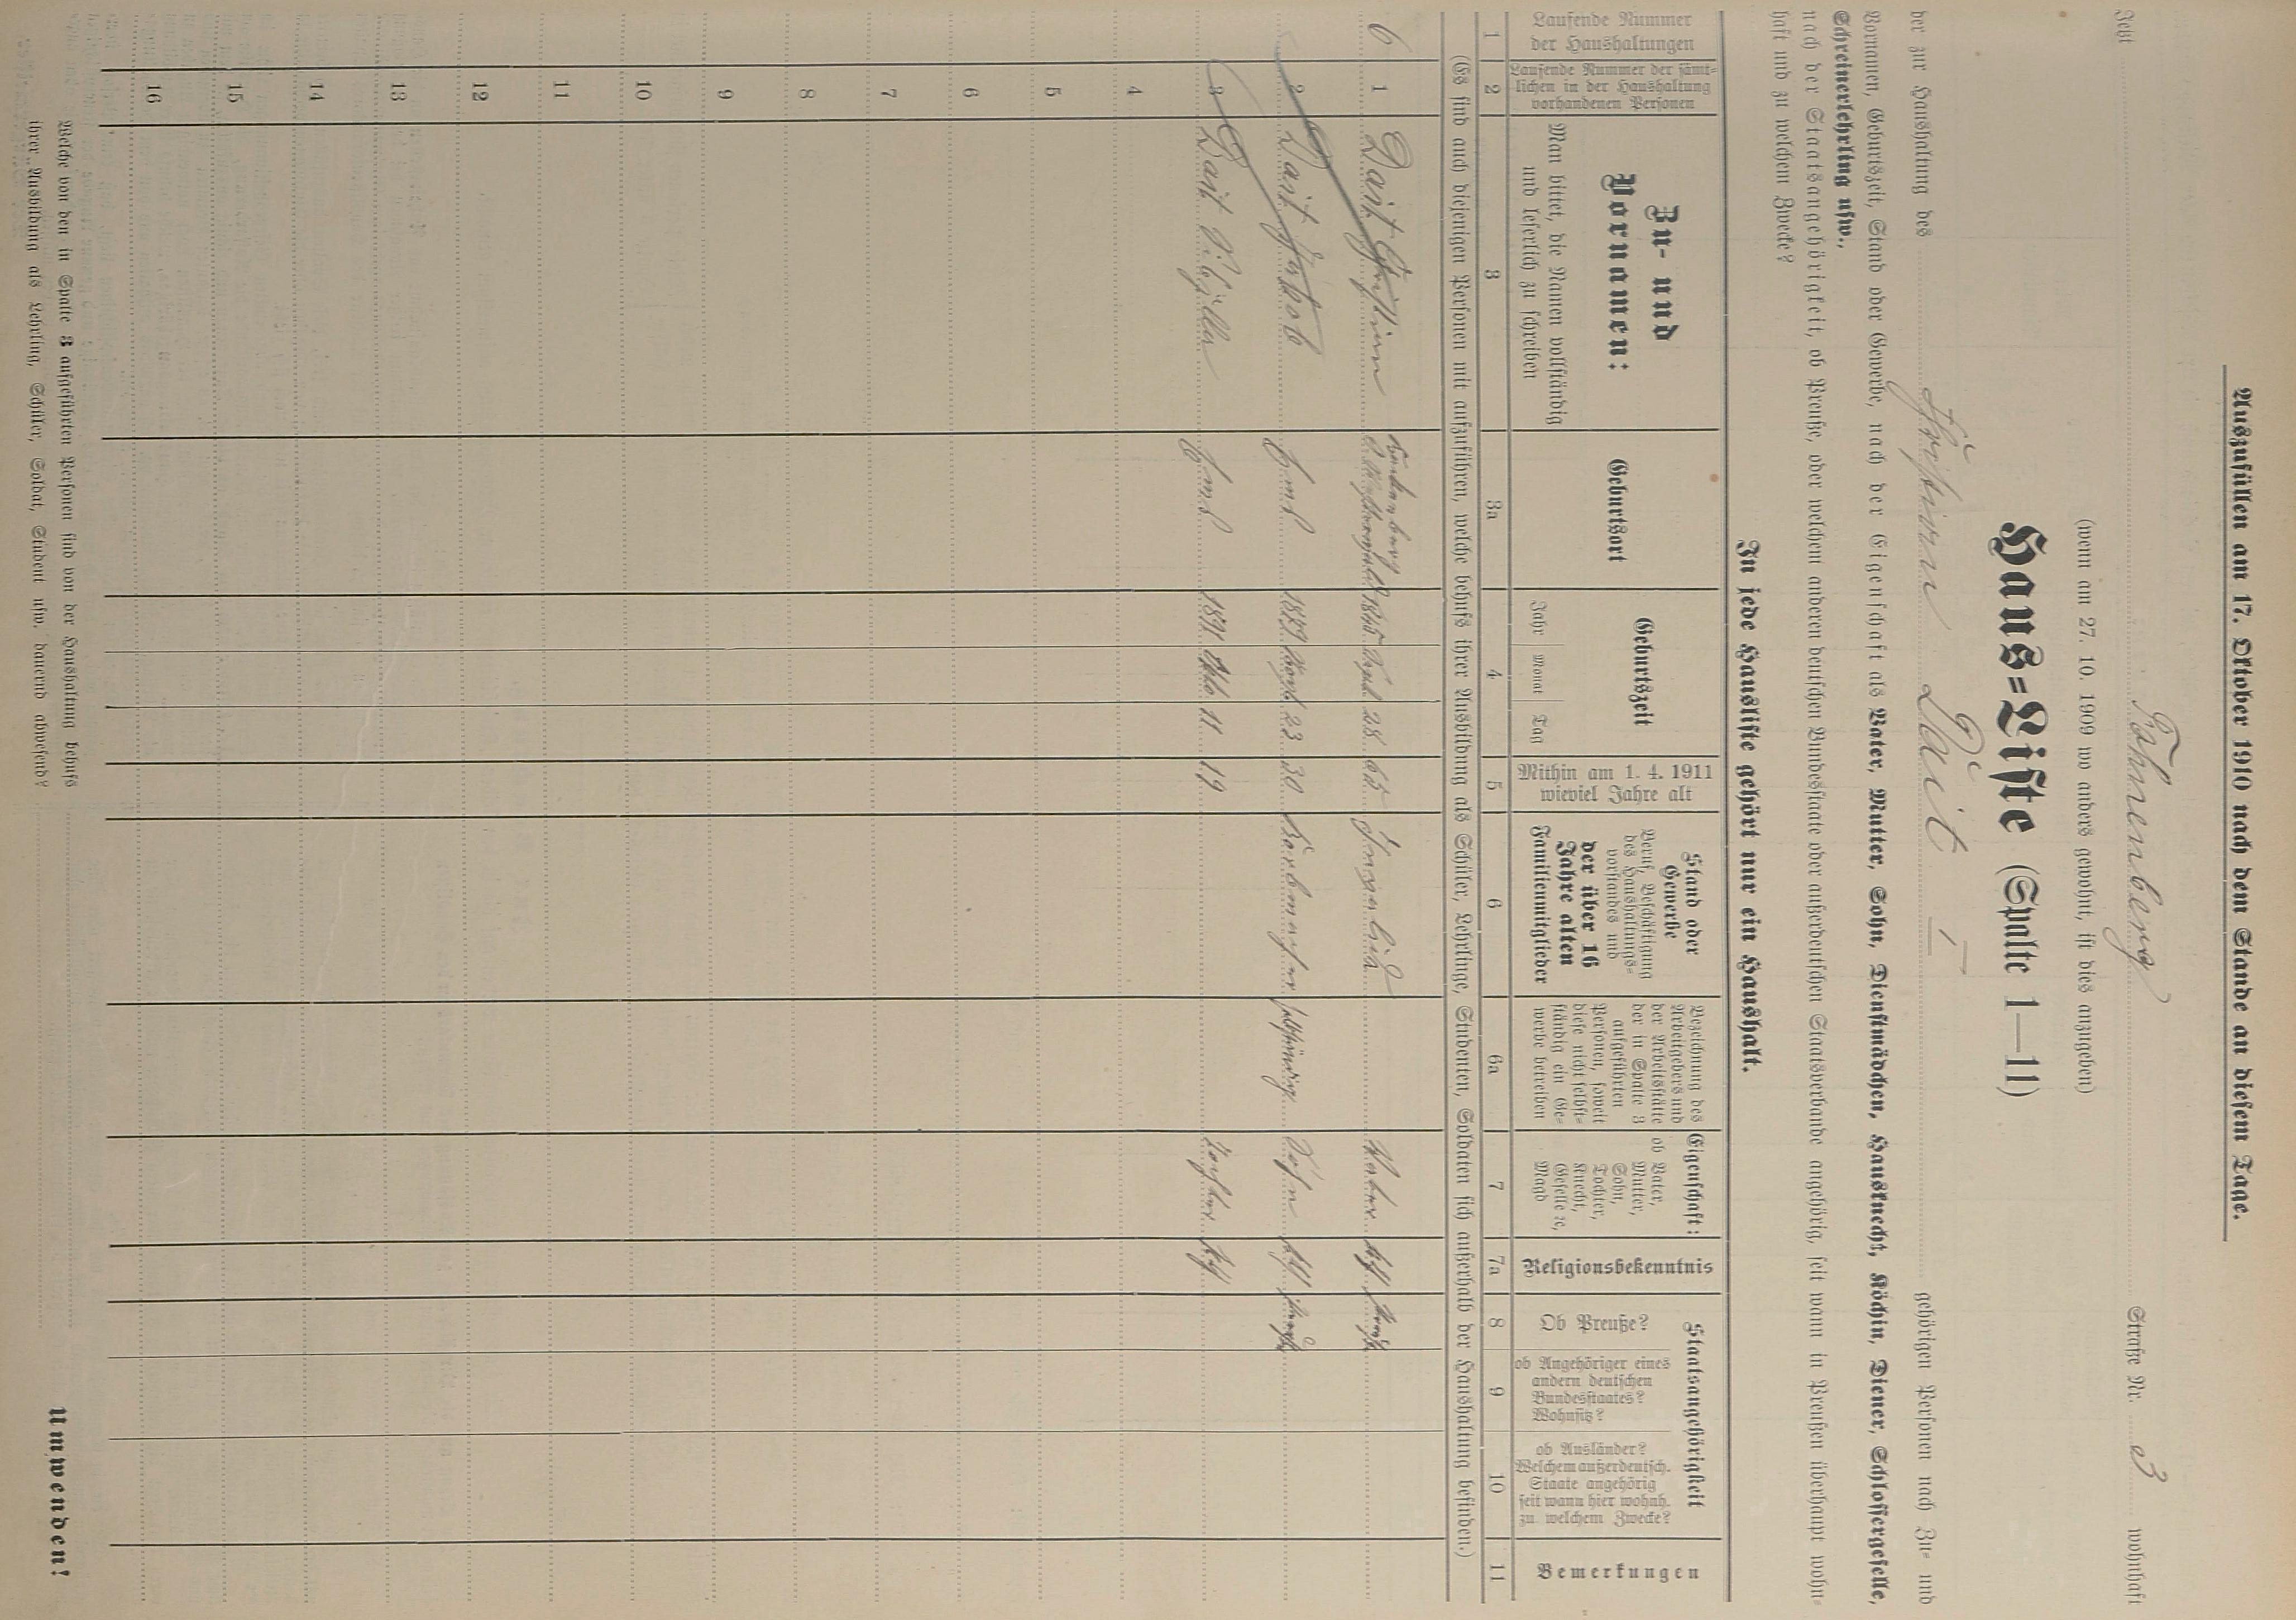 Auszufüllen am 17. Oktober 1910 nach dem Stande an diesem Tage.
Jetzt Föhrenberg Straße Nr. 3 wohnhaft
(wenn am 27. 10. 1909 wo anders gewohnt, ist dies anzugeben)
Haus=Liste (Spalte 1—11)
der zur Haushaltung des Christian Dait I gehörigen Personen nach Zu= und
Vornamen, Geburtszeit, Stand oder Gewerbe, nach der Eigenschaft als Vater, Mutter, Sohn, Dienstmädchen, Hausknecht, Köchin, Diener, Schlossergeselle,
Schreinerlehrling usw.,
nach der Staatsangehörigkeit, ob Preuße, oder welchen anderen deutschen Bundesstaate oder außerdeutschen Staatsverbande angehörig, seit wann in Preußen überhaupt wohn=
haft und zu welchem Zwecke?
In jede Hausliste gehört nur ein Haushalt.
Laufende Nummer
der Haushaltungen
Laufende Nummer der sämt=
lichen in der Haushaltung
vorhandenen Personen
Zu- und
Vornamen:
Man bittet, die Namen vollständig
und leserlich zu schreiben
Geburtsort
Geburtszeit
Jahr Monat Tag
Mithin am 1. 4. 1911
wieviel Jahre alt
Stand oder
Gewerbe
Beruf, Beschäftigung
des Haushaltungs=
vorstandes und
der über 16
Jahre alten
Familienmitglieder
Bezeichnung des
Arbeitgebers und
der Arbeitsstätte
der in Spalte 3
aufgeführten
Personen, soweit
diese nicht selbst=
ständig ein Ge=
werbe betreiben
Eigenschaft:
ob Vater,
Mutter,
Sohn,
Tochter,
Knecht,
Geselle ec,
Magd
Religionsbekenntnis
Staatsangehörigkeit
Ob Preuße?
ob Angehöriger eines
andern deutschen
Bundesstaates?
Wohnsitz?
ob Ausländer?
Welchem außerdeutsch.
Staate angehörig
seit wann hier wohnh.
zu welchem Zwecke?
Bemerkungen
1 2 3 3a 4 5 6 6a 7 7a 8 9 10 11
(Es sind auch diejenigen Personen mit aufzuführen, welche behufs ihrer Ausbildung als Schüler, Lehrlinge, Studenten, Soldaten sich außerhalb der Haushaltung befinden.)
6 1 Dait Christian 1845 28 65 Invalid Vater
2 Dait Jakob 23 30 Korbmacher selbständig Sohn
3 Dait 1891 Okto 11 19 Tochter
4
5
6
7
8
9
10
11
12
13
14
15
16
Welche von den in Spalte 3 aufgeführten Personen sind von der Haushaltung behufs
ihrer Ausbildung als Lehrling, Schüler, Soldat, Student usw. dauernd abwesend?
Umwenden!